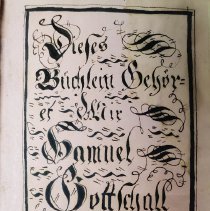 Dieses
Büchlein Gehör-
et Mir
Samuel
Gottschall